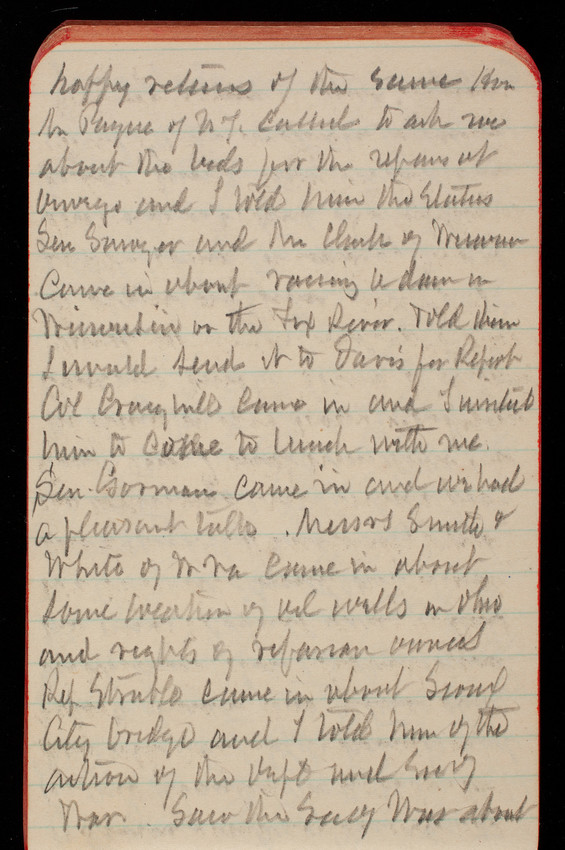 happy returns of the same Hon
Mr Payne of N.Y. called to ask me
about the bids for the repairs at
Oswego and I told him the Status
Sen Sawyer and the Clerk of
Came in about raising a dam in
Wisconsin on the Fox River. Told them
I would send it to Davis for Report
Col Craighill came in and I invited
him to come to lunch with me.
Sen Gorman came in and we had
a pleasant talk. Messrs Smith &
White of W Va came in about
some location of oil wells in Ohio
and rights of reparian owners
Rep Struble came in about Sioux
City bridge and I told him of the
action of the Dept and Secy
War. Saw the Secy War about